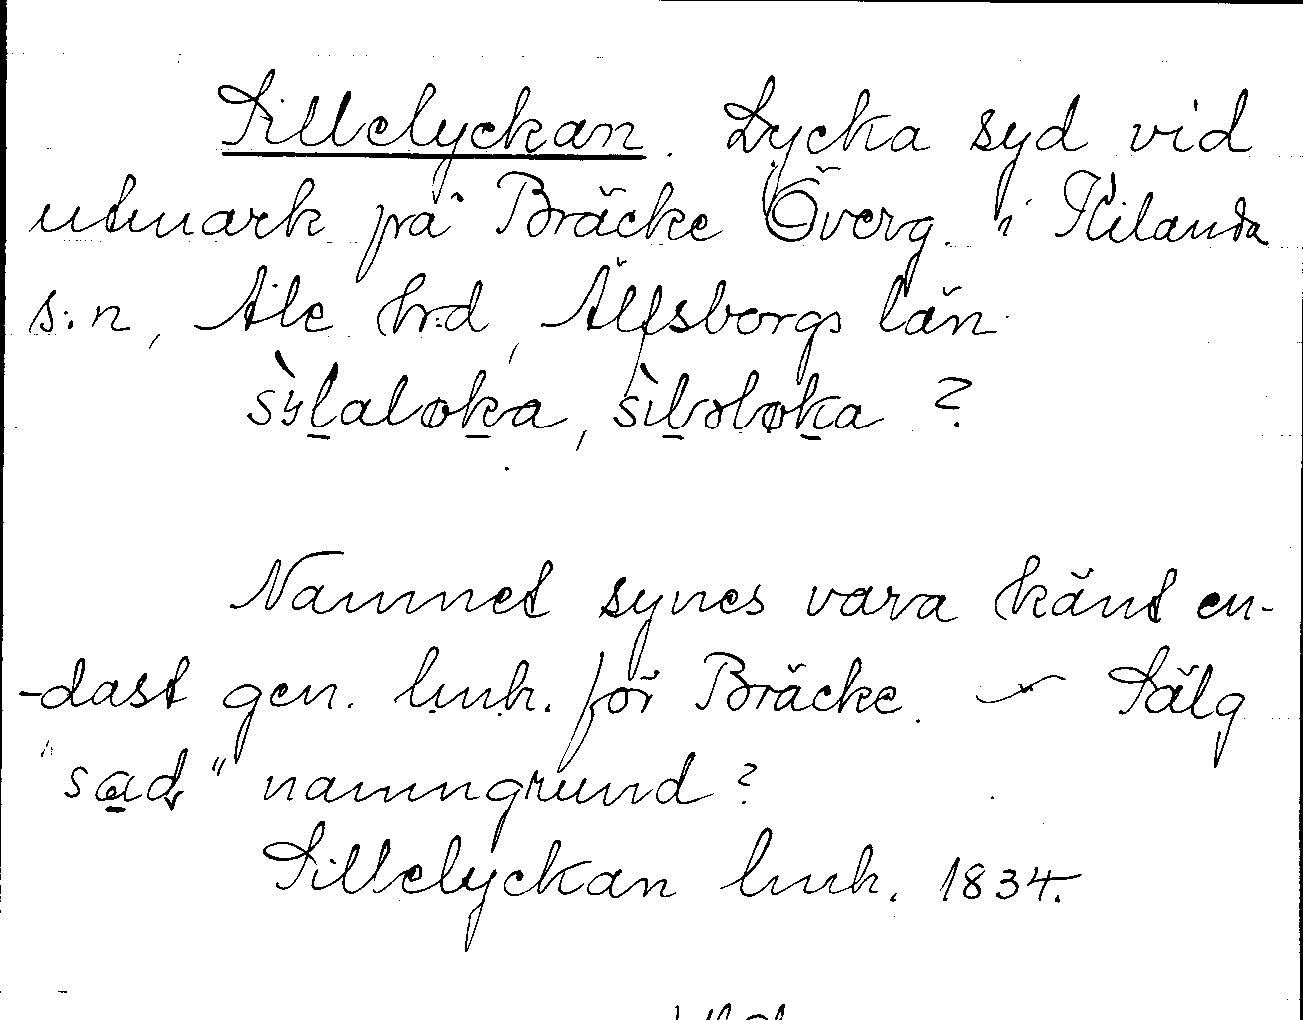 Sillelyckan. Lycka syd vid
utmark på Bräcke Överg. i Kilanda
s:n, Ale hrd, Älfsborgs län.
Namnet synes vara känt en-
-dast gen. lmh. för Bräcke. – Sälg
"sad" namngrund?
Sillelyckan lmh. 1834.